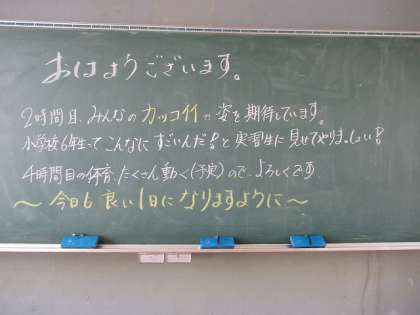 おはようございます。
2時間目、みんなのカッコイイ姿を期待しています。
小学校6年生ってこんなにすごいんだ!と実習生に見せてやりましょい!
4時間目の体育、たくさん動く(予定)ので、よろしくです
～今日も良い1日になりますように～